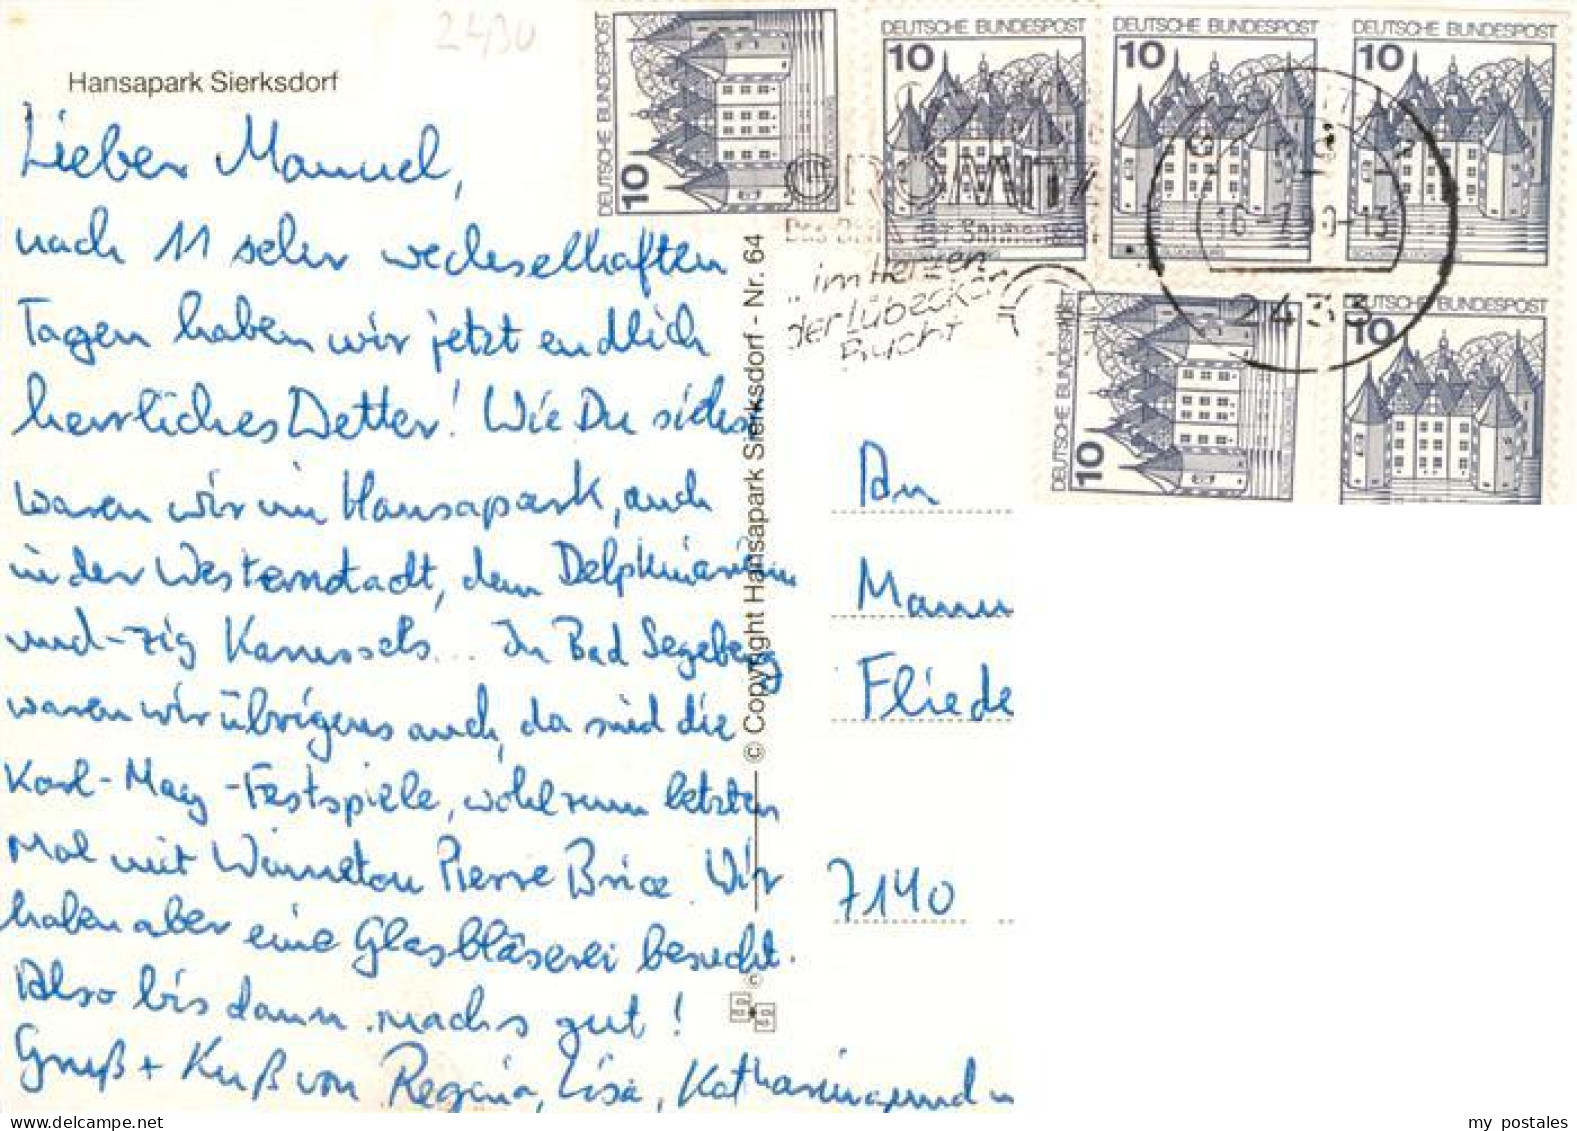 2430
Hansapark Sierksdorf
Lieber Manuel,
nach 11 sehr wechselhaften
Tagen haben wir jetzt endlich
herrliches Wetter! Wie Du siehst
waren wir im Hansapark, auch
in der Westernstadt, dem Delphinarium
und -zig Karussels... In Bad Segeberg
waren wir übrigens auch, da sind die
Karl-May-Festspiele, wohl zum letzten
Mal mit Winnetou Pierre Brice. Wir
haben aber eine Glasbläserei besucht.
Also bis dann, machs gut!
Gruß + Kuß von Regina, Lisa, Katharina, und
© Copyright Hansapark Sierksdorf - Nr. 64
DEUTSCHE BUNDESPOST
10
DEUTSCHE BUNDESPOST
10
DEUTSCHE BUNDESPOST
10
DEUTSCHE BUNDESPOST
10
DEUTSCHE BUNDESPOST
10
DEUTSCHE BUNDESPOST
10
GRÖMITZ
Das Bad der Sonnenseite
im Herzen
der Lübecker
Bucht
16-7.90-13
2433
An
Manu
Fliede
7140
my postales